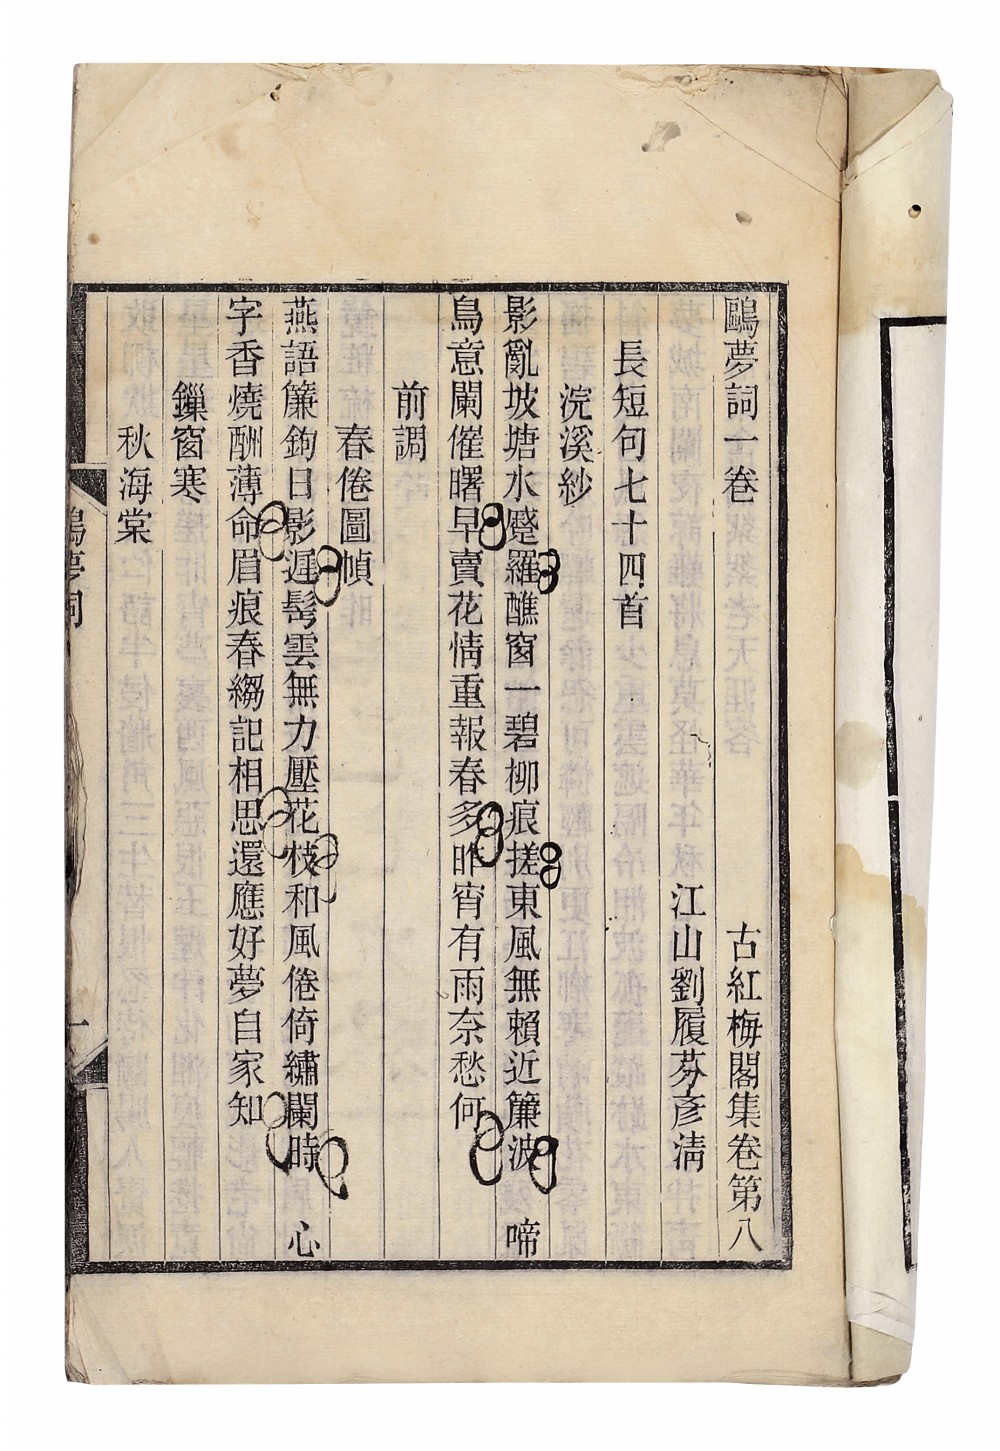 鷗夢詞一卷 古紅梅閣集卷第八
江山劉履芬彥清
長短句七十四首
浣溪紗
影亂坡塘水蹙羅醮窗一碧柳痕搓東風無賴近簾波 啼
鳥意闌催曙早賣花情重報春多昨宵有雨奈愁何
前調
春倦圖幀
燕語簾鉤日影遲髩雲無力壓花枝和風倦倚繡闌時 心
字香燒酬薄命眉痕春縐記相思還應好夢自家知
鏁窗寒
秋海棠
鷗夢詞
一